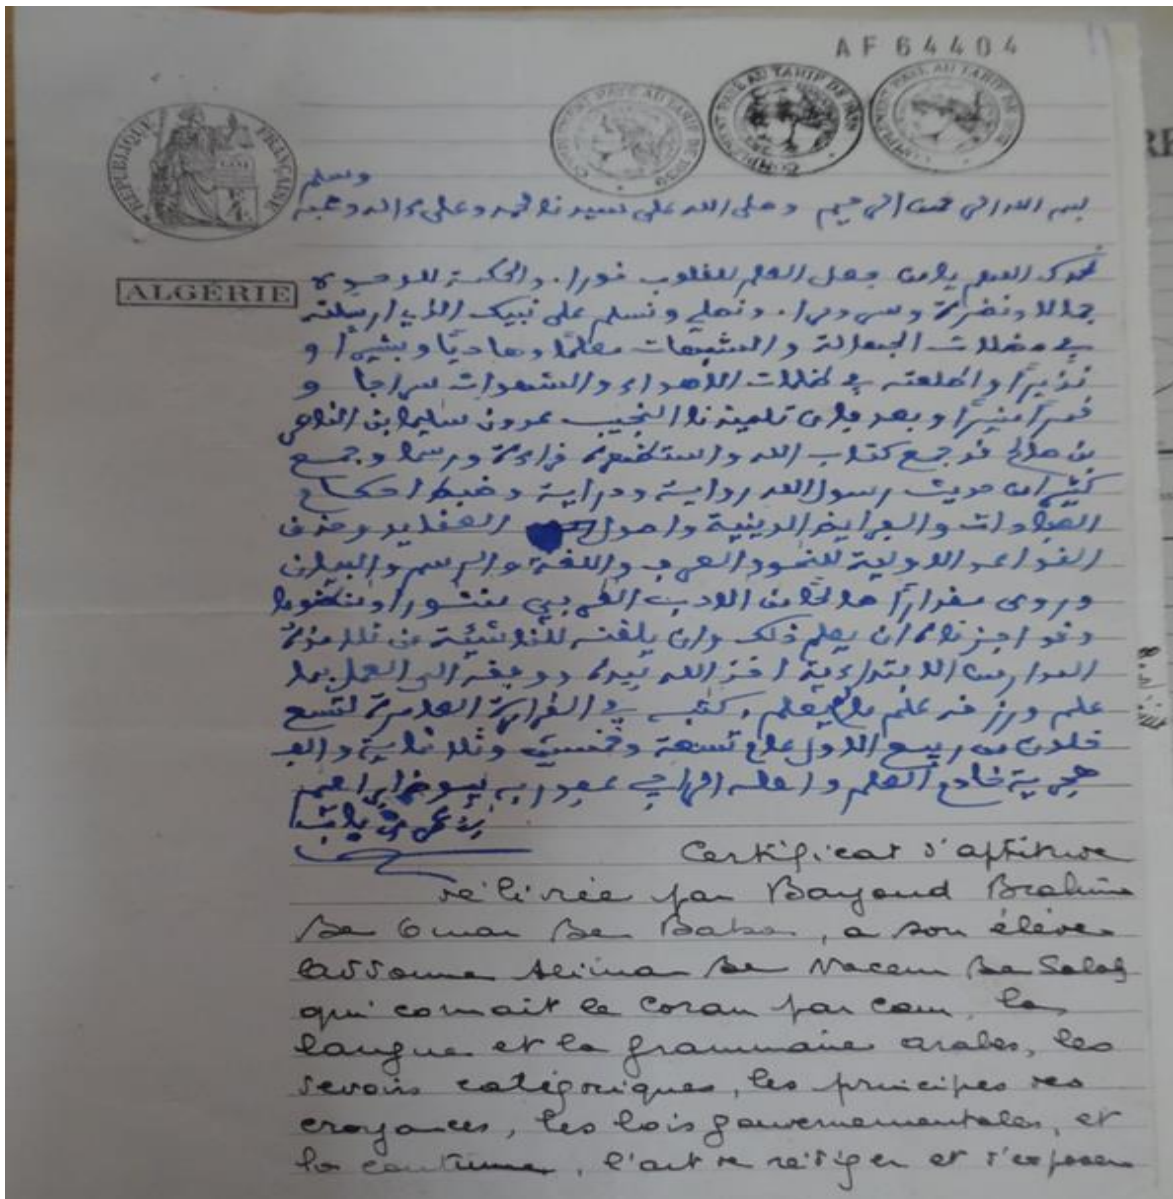 AF 64404
COMPLEMENT PAYE AU TARIF DE 1939
COMPLEMENT PAYE AU TARIF DE 1939
COMPLEMENT PAYE AU TARIF DE 1939
REPUBLIQUE FRANÇAISE
ALGÉRIE
وسلم
بسم الله الرحمن الرحيم وصلى الله على سيدنا محمد وعلى ءاله وصحبه
نحمدك اللهم يا من جعل العلم للقلوب نورا. والحكمة للوجوه
جمالا ونضرة وسرورا. ونصلي ونسلم على نبيك الذي ارسلته
في مضلات الجهالة والشبهات معلمًا وهاديًا وبشيرًا و
نذيرًا واطلعته في ظلمات الاهواء والشهوات سراجا و
قمرًا منيرًا وبعد فان تلميذنا النجيب عدون سليمان بن الناصر
بن صالح قد جمع كتاب الله واستظهره قراءة ورسما وجمع
كثيرا من حديث رسول الله رواية ودراية وضبط احكام
العبادات والفرايض الدينية واصول العقايد وحذق
القواعد الاولية للنحو والصرف واللغة والرسم والبيان
وروى مقدارًا صالحًا من الادب العربي منثورا ومنظوما
وقد اجزناه ان يعلم ذلك وان يلقنه للناشئة من تلامذة
المدارس الابتداءية اخذ الله بيده ووفقه الى العمل بما
علم ورزقه علم ما لم يعلم. كتب في القرارة العامرة لتسع
خلون من ربيع الاول عام تسعة وخمسين وثلاثماية والف
هجرية خادم العلم واهله الراجي عفو ربه بيوض ابراهيم
بن عمر بن بابه
Certificat d'aptitude
délivrée par Bayoud Brahim
Ben Omar Ben Baba, a son élève
Addoune Sliman Ben Naceur Ben Salah
qui connait le Coran par cœur, la
langue et la grammaire arabes, les
devoirs catégoriques, les principes des
croyances, les lois gouvernementales, et
la coutume, l'art de rédiger et d'exposer